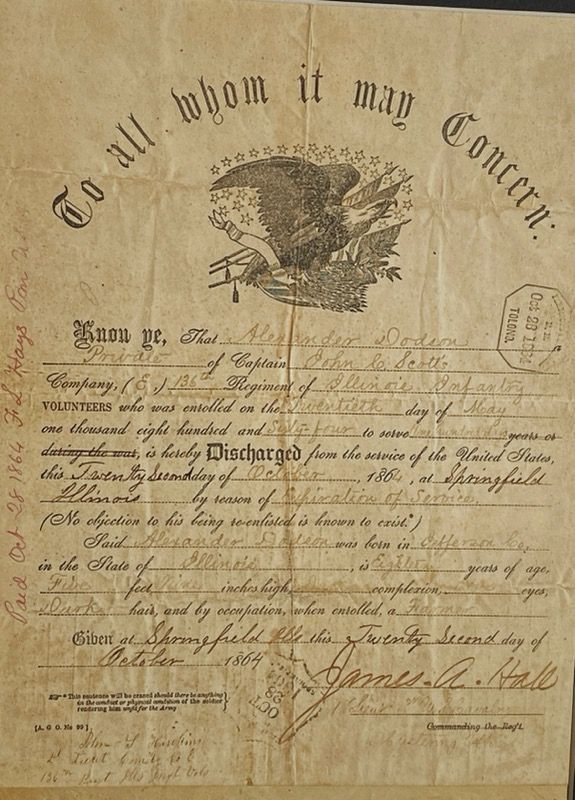 To all whom it may Concern:
Know ye, That Alexander Dodson
Private of Captain John C Scott
Company, (E,) 136th Regiment of Illinois Infantry
VOLUNTEERS who was enrolled on the Twentieth day of May
one thousand eight hundred and Sixty four to serve years or
during the war, is hereby Discharged from the service of the United States,
this Twenty Second day of October, 1864, at Springfield
Illinois by reason of Expiration of Service
(No objection to his being re-enlisted is known to exist.*)
Said Alexander Dodson was born in Jefferson Co,
in the State of Illinois, is Eighteen years of age,
Five feet Nine inches high, complexion, eyes,
Dark hair, and by occupation, when enrolled, a Farmer
Given at Springfield Ills this Twenty Second day of
October 1864
James. A. Hall
Lieut
Commanding the Reg't
*This sentence will be erased should there be anything
in the conduct or physical condition of the soldier
rendering him unfit for the Army
[A. G. O. No 99]
John S
Lieut Comdg Co E
136th Regt Ills Inft Vols
Paid Oct 28 1864 F. L. Hays Pay
Oct 28 1864
TOLONO
OCT
28